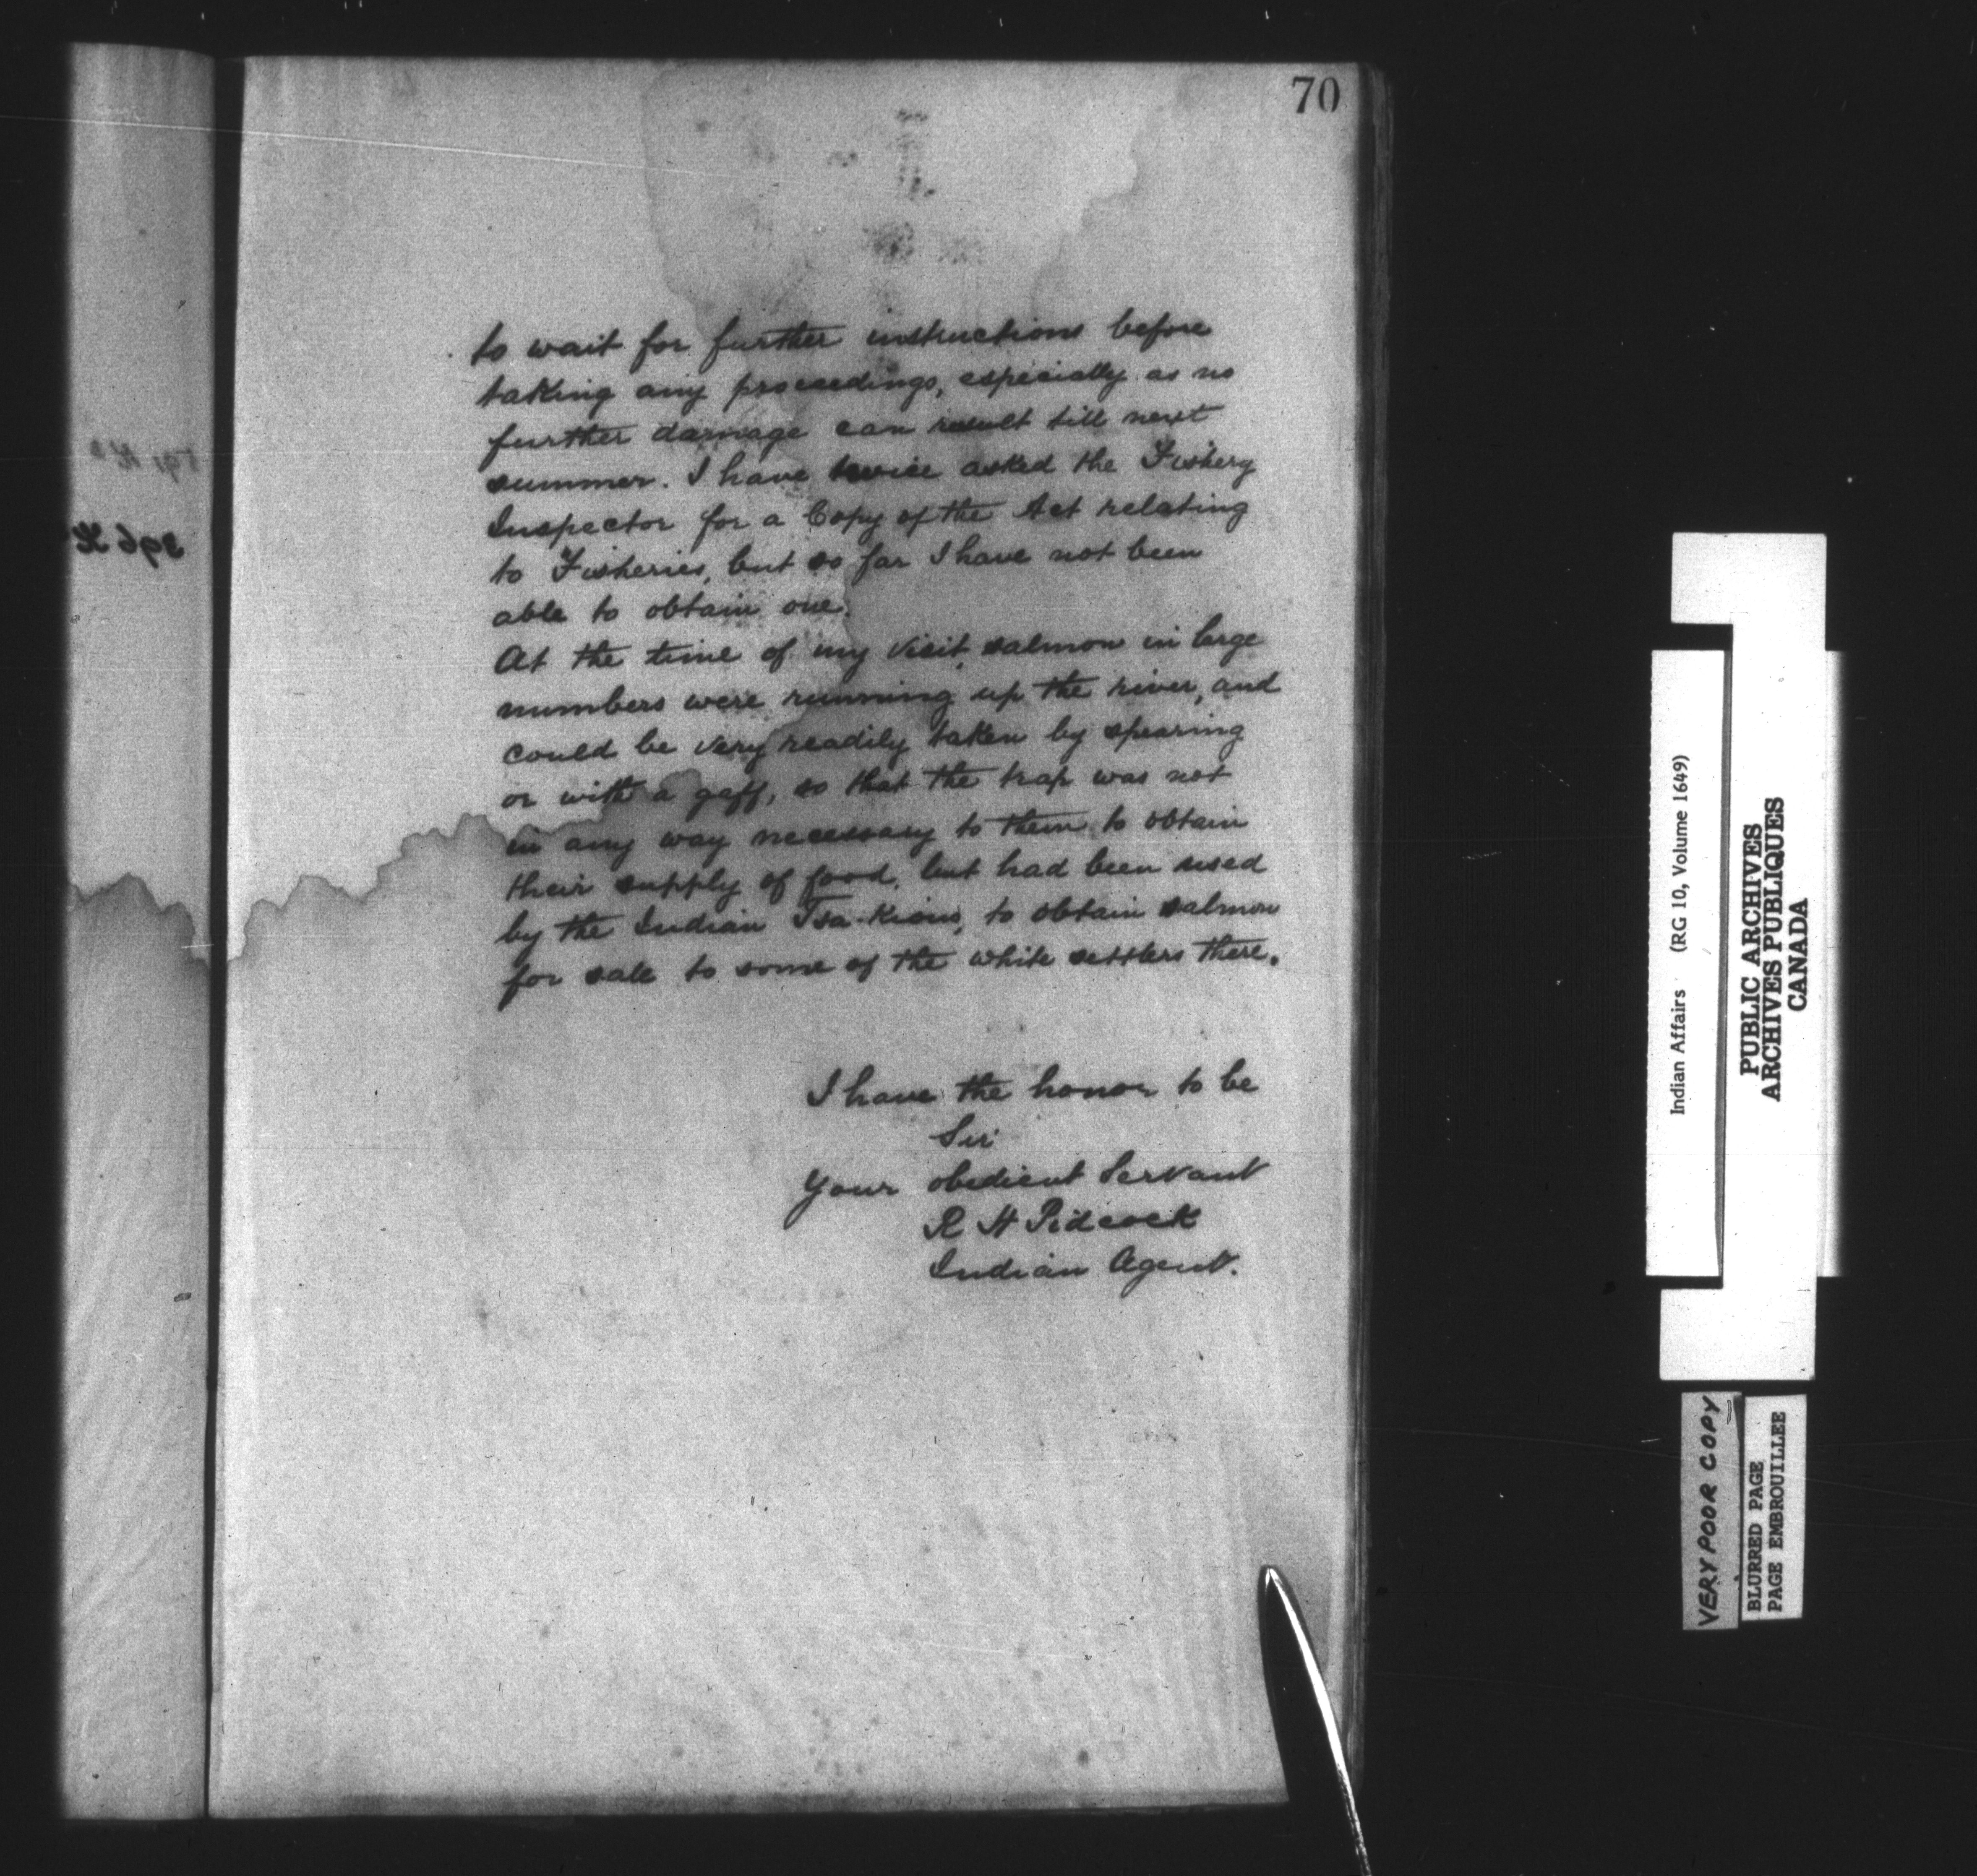 70
to wait for further instructions before
taking any proceedings, especially as no
further damage can result till next
summer. I have twice asked the Fishery
Inspector for a Copy of the Act relating
to Fisheries, but so far I have not been
able to obtain one.
At the time of my visit, salmon in large
numbers were running up the river, and
could be very readily taken by spearing
or with a gaff, so that the trap was not
in any way necessary to them to obtain
their supply of food, but had been used
by the Indian to obtain salmon
for sale to some of the white settlers there.
I have the honor to be
Sir
Your obedient Servant
R H Pidcock
Indian Agent.
Indian Affairs (RG 10, Volume 1649)
PUBLIC ARCHIVES
ARCHIVES PUBLIQUES
CANADA
VERY POOR COPY
BLURRED PAGE
PAGE EMBROUILLEE